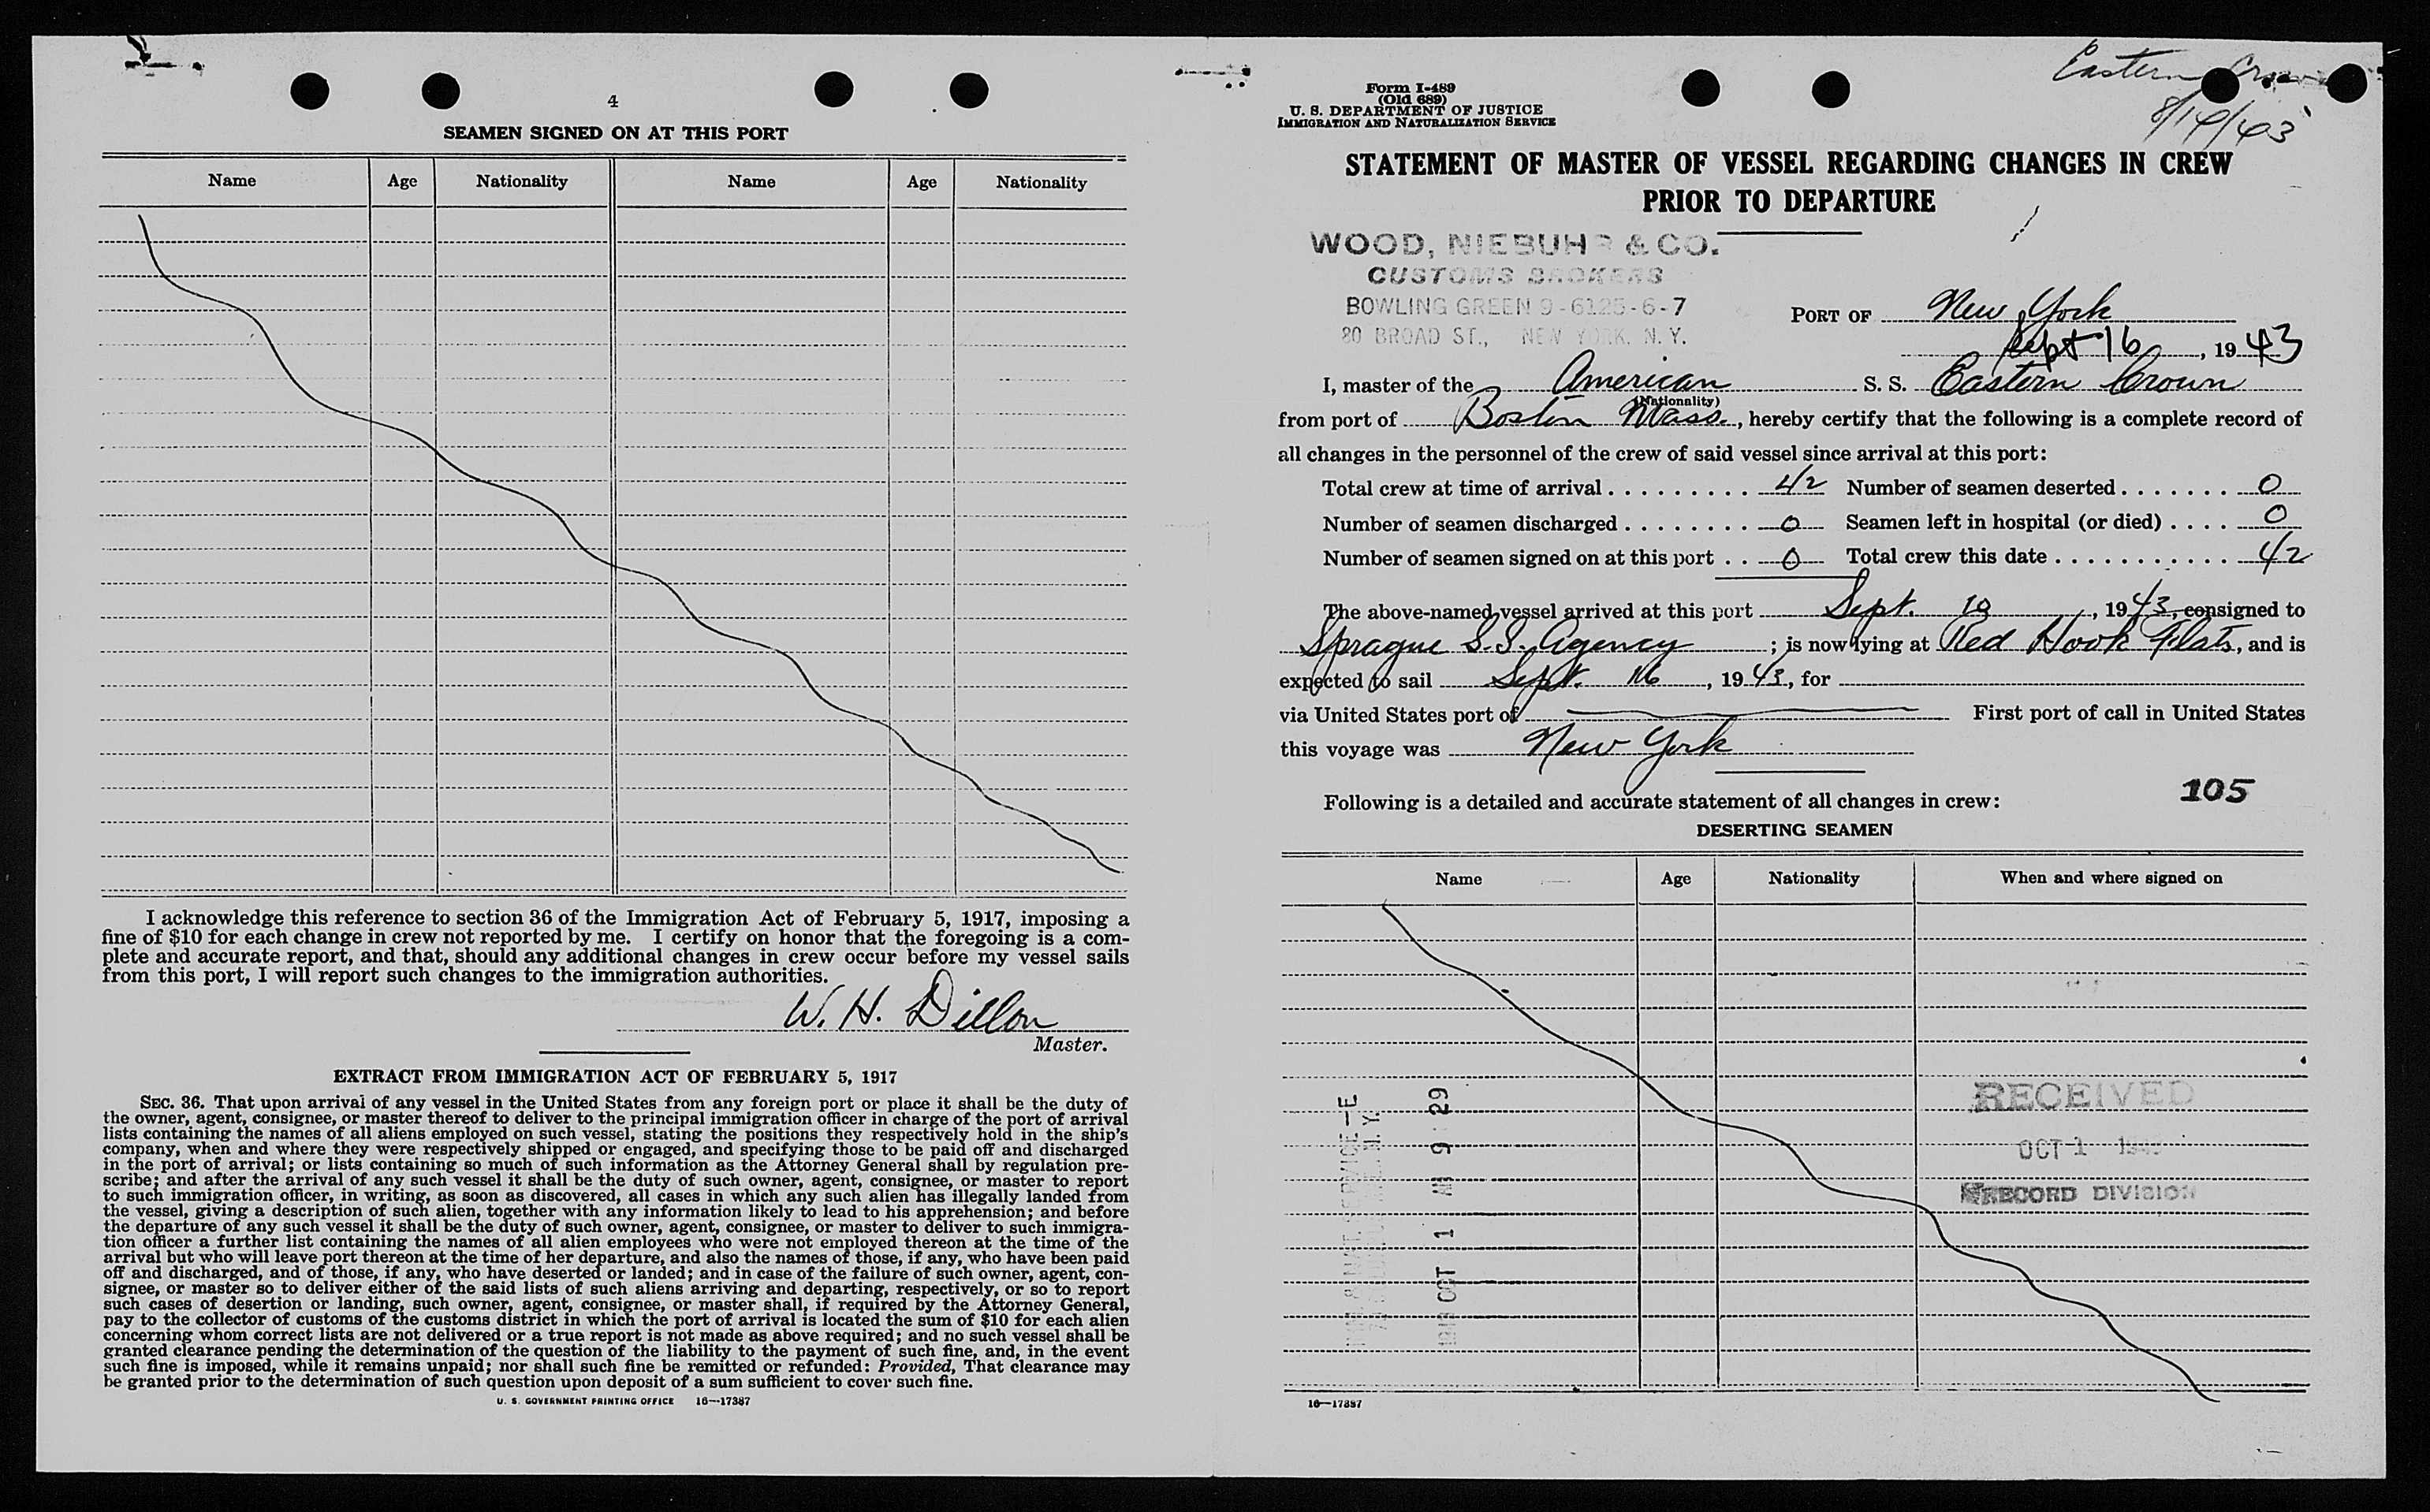 4
SEAMEN SIGNED ON AT THIS PORT
Name Age Nationality Name Age Nationality
I acknowledge this reference to section 36 of the Immigration Act of February 5, 1917, imposing a
fine of $10 for each change in crew not reported by me. I certify on honor that the foregoing is a com-
plete and accurate report, and that, should any additional changes in crew occur before my vessel sails
from this port, I will report such changes to the immigration authorities.
W. H. Dillon
Master.
EXTRACT FROM IMMIGRATION ACT OF FEBRUARY 5, 1917
SEC. 36. That upon arrival of any vessel in the United States from any foreign port or place it shall be the duty of
the owner, agent, consignee, or master thereof to deliver to the principal immigration officer in charge of the port of arrival
lists containing the names of all aliens employed on such vessel, stating the positions they respectively hold in the ship's
company, when and where they were respectively shipped or engaged, and specifying those to be paid off and discharged
in the port of arrival; or lists containing so much of such information as the Attorney General shall by regulation pre-
scribe; and after the arrival of any such vessel it shall be the duty of such owner, agent, consignee, or master to report
to such immigration officer, in writing, as soon as discovered, all cases in which any such alien has illegally landed from
the vessel, giving a description of such alien, together with any information likely to lead to his apprehension; and before
the departure of any such vessel it shall be the duty of such owner, agent, consignee, or master to deliver to such immigra-
tion officer a further list containing the names of all alien employees who were not employed thereon at the time of the
arrival but who will leave port thereon at the time of her departure, and also the names of those, if any, who have been paid
off and discharged, and of those, if any, who have deserted or landed; and in case of the failure of such owner, agent, con-
signee, or master so to deliver either of the said lists of such aliens arriving and departing, respectively, or so to report
such cases of desertion or landing, such owner, agent, consignee, or master shall, if required by the Attorney General,
pay to the collector of customs of the customs district in which the port of arrival is located the sum of $10 for each alien
concerning whom correct lists are not delivered or a true report is not made as above required; and no such vessel shall be
granted clearance pending the determination of the question of the liability to the payment of such fine, and, in the event
such fine is imposed, while it remains unpaid; nor shall such fine be remitted or refunded: Provided, That clearance may
be granted prior to the determination of such question upon deposit of a sum sufficient to cover such fine.
U. S. GOVERNMENT PRINTING OFFICE 16—17387
Eastern Crown
Form I-489
(Old 689)
U. S. DEPARTMENT OF JUSTICE
IMMIGRATION AND NATURALIZATION SERVICE
STATEMENT OF MASTER OF VESSEL REGARDING CHANGES IN CREW
PRIOR TO DEPARTURE
WOOD, NIEBUHR & CO.
CUSTOMS BROKERS
BOWLING GREEN 9-6125-6-7
80 BROAD ST., NEW YORK, N. Y.
PORT OF New York
Sept 16, 1943
I, master of the American S. S. Eastern Crown
(Nationality)
from port of Boston Mass., hereby certify that the following is a complete record of
all changes in the personnel of the crew of said vessel since arrival at this port:
Total crew at time of arrival . . . . . . . . . 42 Number of seamen deserted . . . . . . . 0
Number of seamen discharged . . . . . . . . 0 Seamen left in hospital (or died) . . . . 0
Number of seamen signed on at this port . . 0 Total crew this date . . . . . . . . . . . . 42
The above-named vessel arrived at this port Sept. 10, 1943, consigned to
Sprague S.S. Agency; is now lying at Red Hook Flats, and is
expected to sail Sept. 16, 1943, for
via United States port of First port of call in United States
this voyage was New York
Following is a detailed and accurate statement of all changes in crew:
105
DESERTING SEAMEN
Name Age Nationality When and where signed on
RECEIVED
OCT 1
RECORD DIVISION
OCT 1 AM 9 29
16—17387